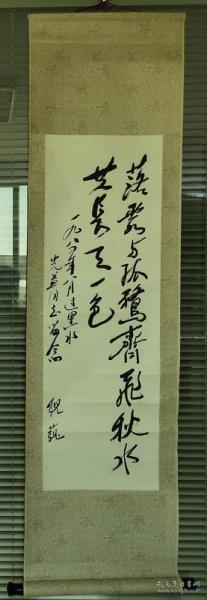 落霞与孤鹜齐飞秋水
共长天一色
一九八六年八月过黑水
光益同志留念
魏巍
孔夫子旧书网